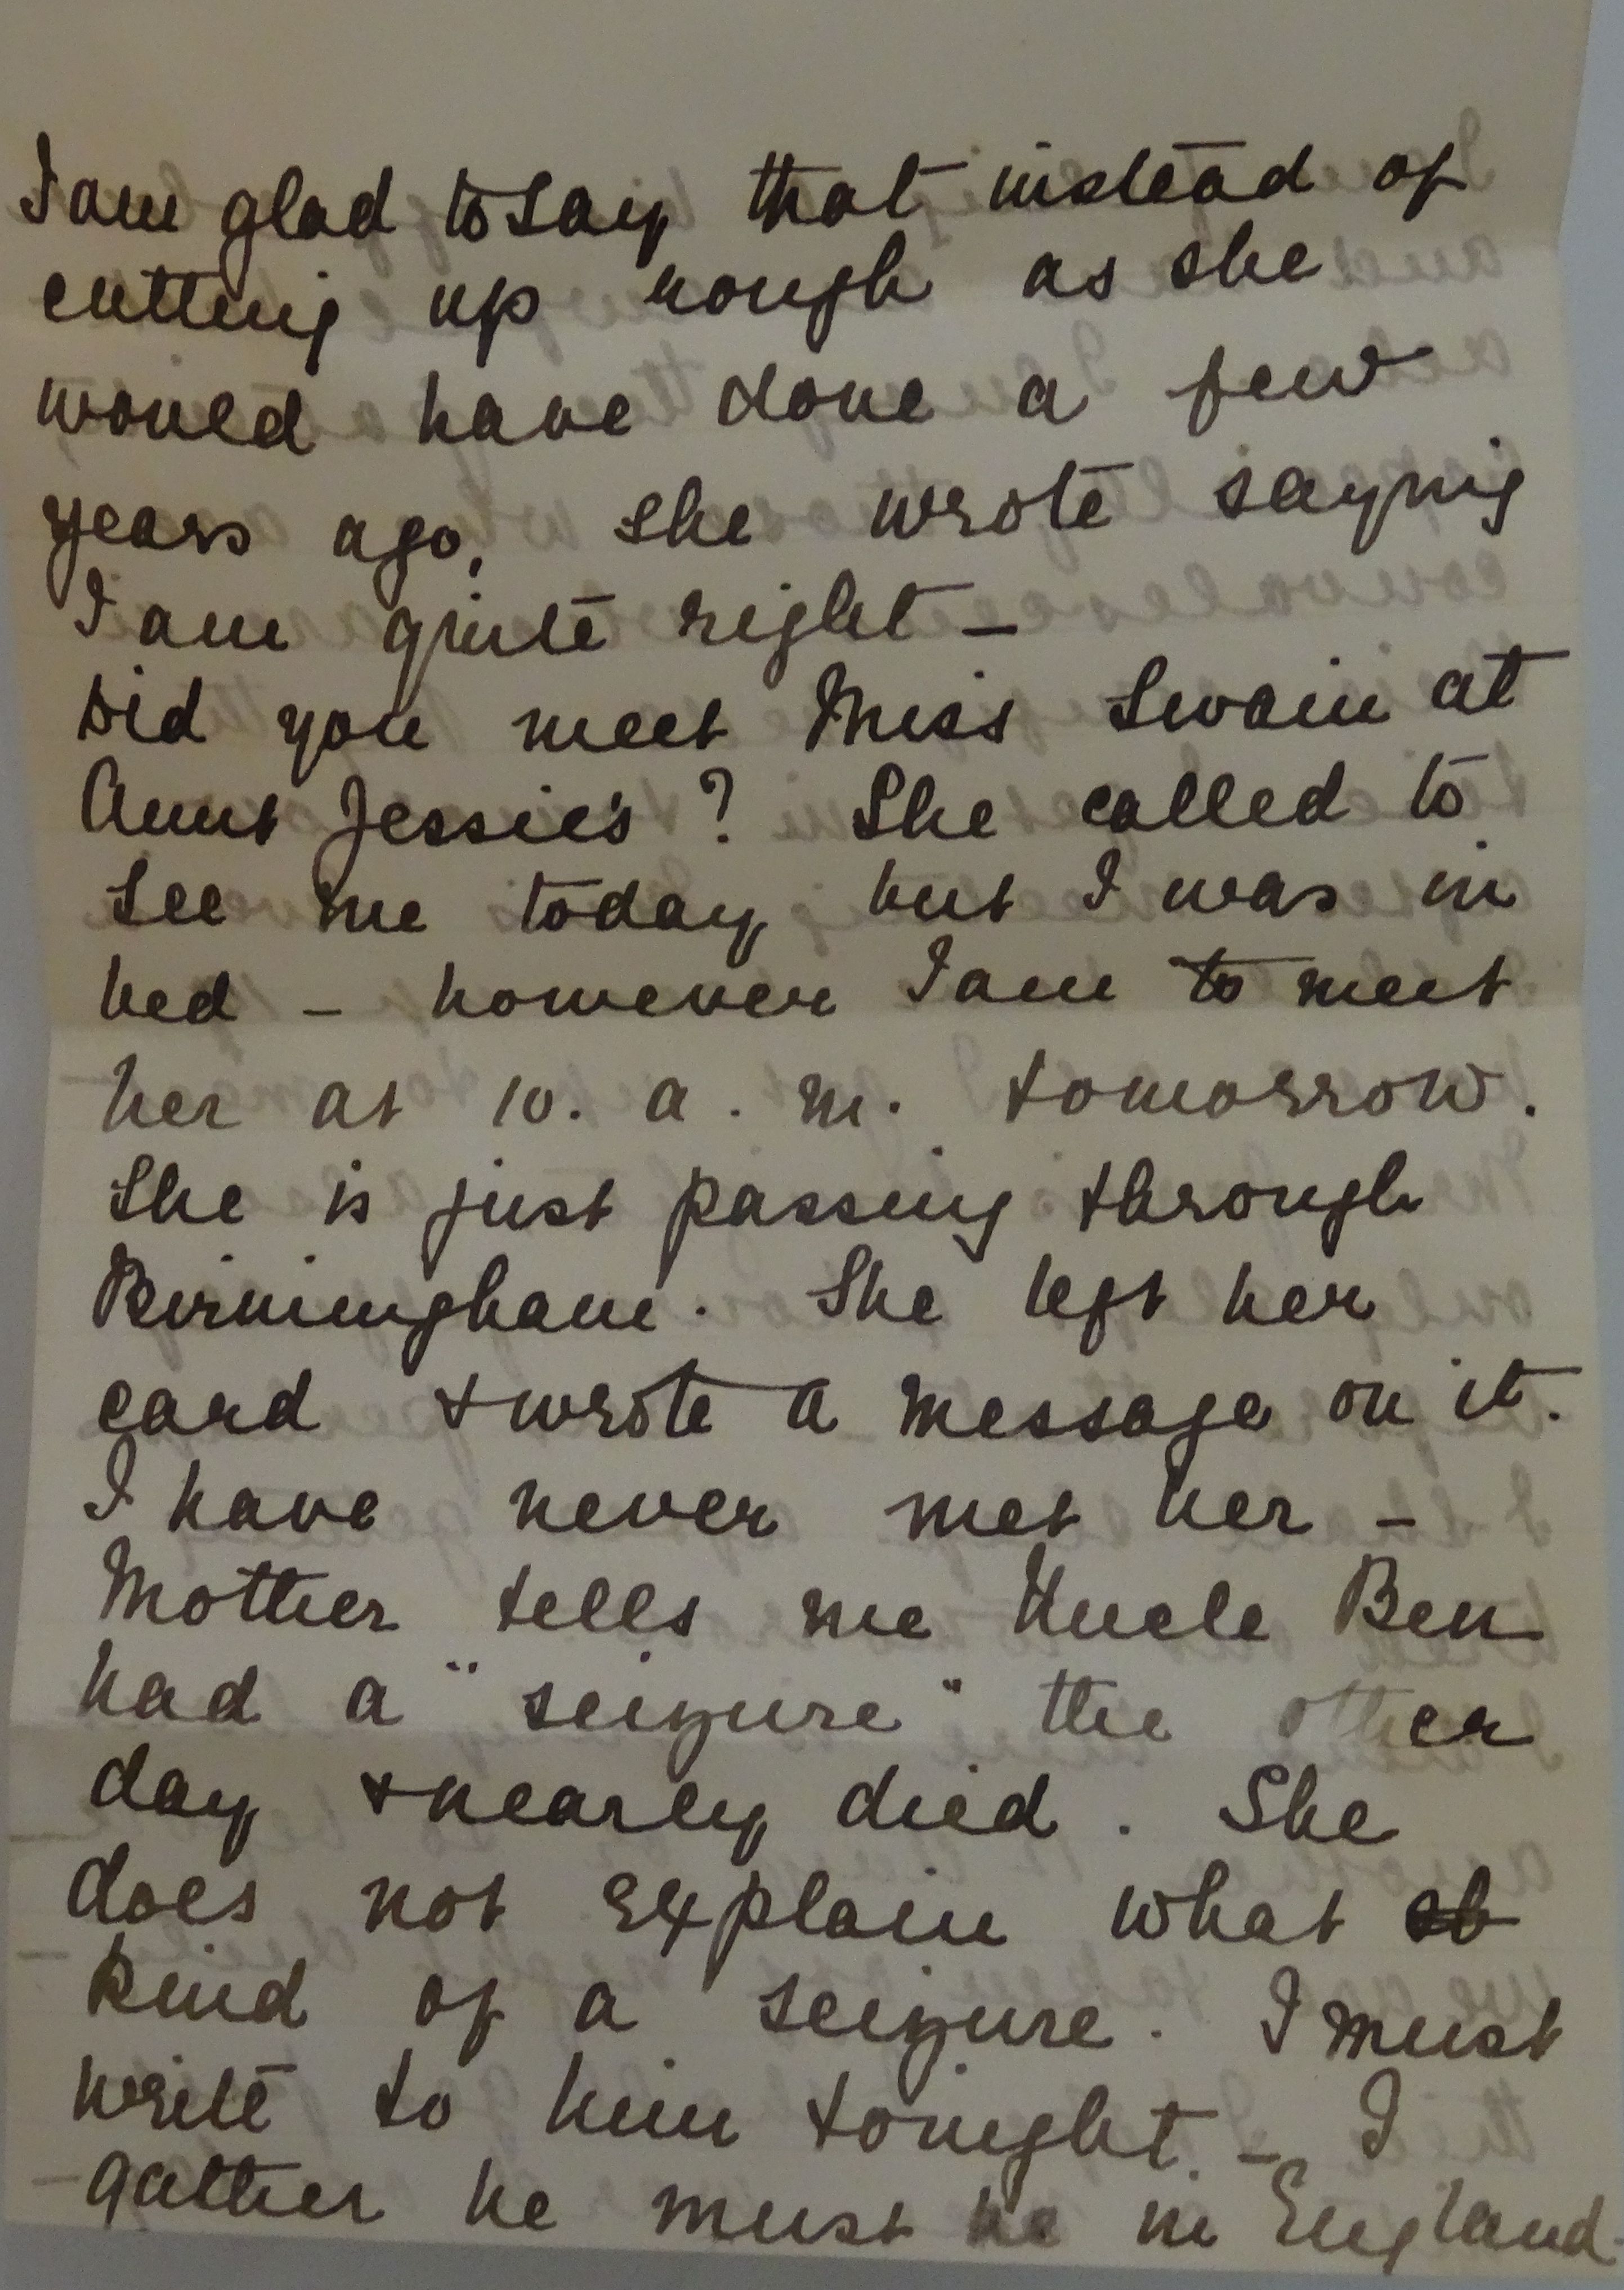 I am glad to say that instead of
cutting up rough as she
would have done a few
years ago, she wrote saying
I am quite right –
Did you meet Miss Swain at
Aunt Jessie's? She called to
see me today but I was in
bed – however I am to meet
her at 10. a. m. tomorrow.
She is just passing through
Birmingham. She left her
card & wrote a message on it.
I have never met her –
Mother tells me Uncle Ben
had a "seizure" the other
day & nearly died. She
does not explain what
kind of a seizure. I must
write to him tonight. – I
gather he must be in England.